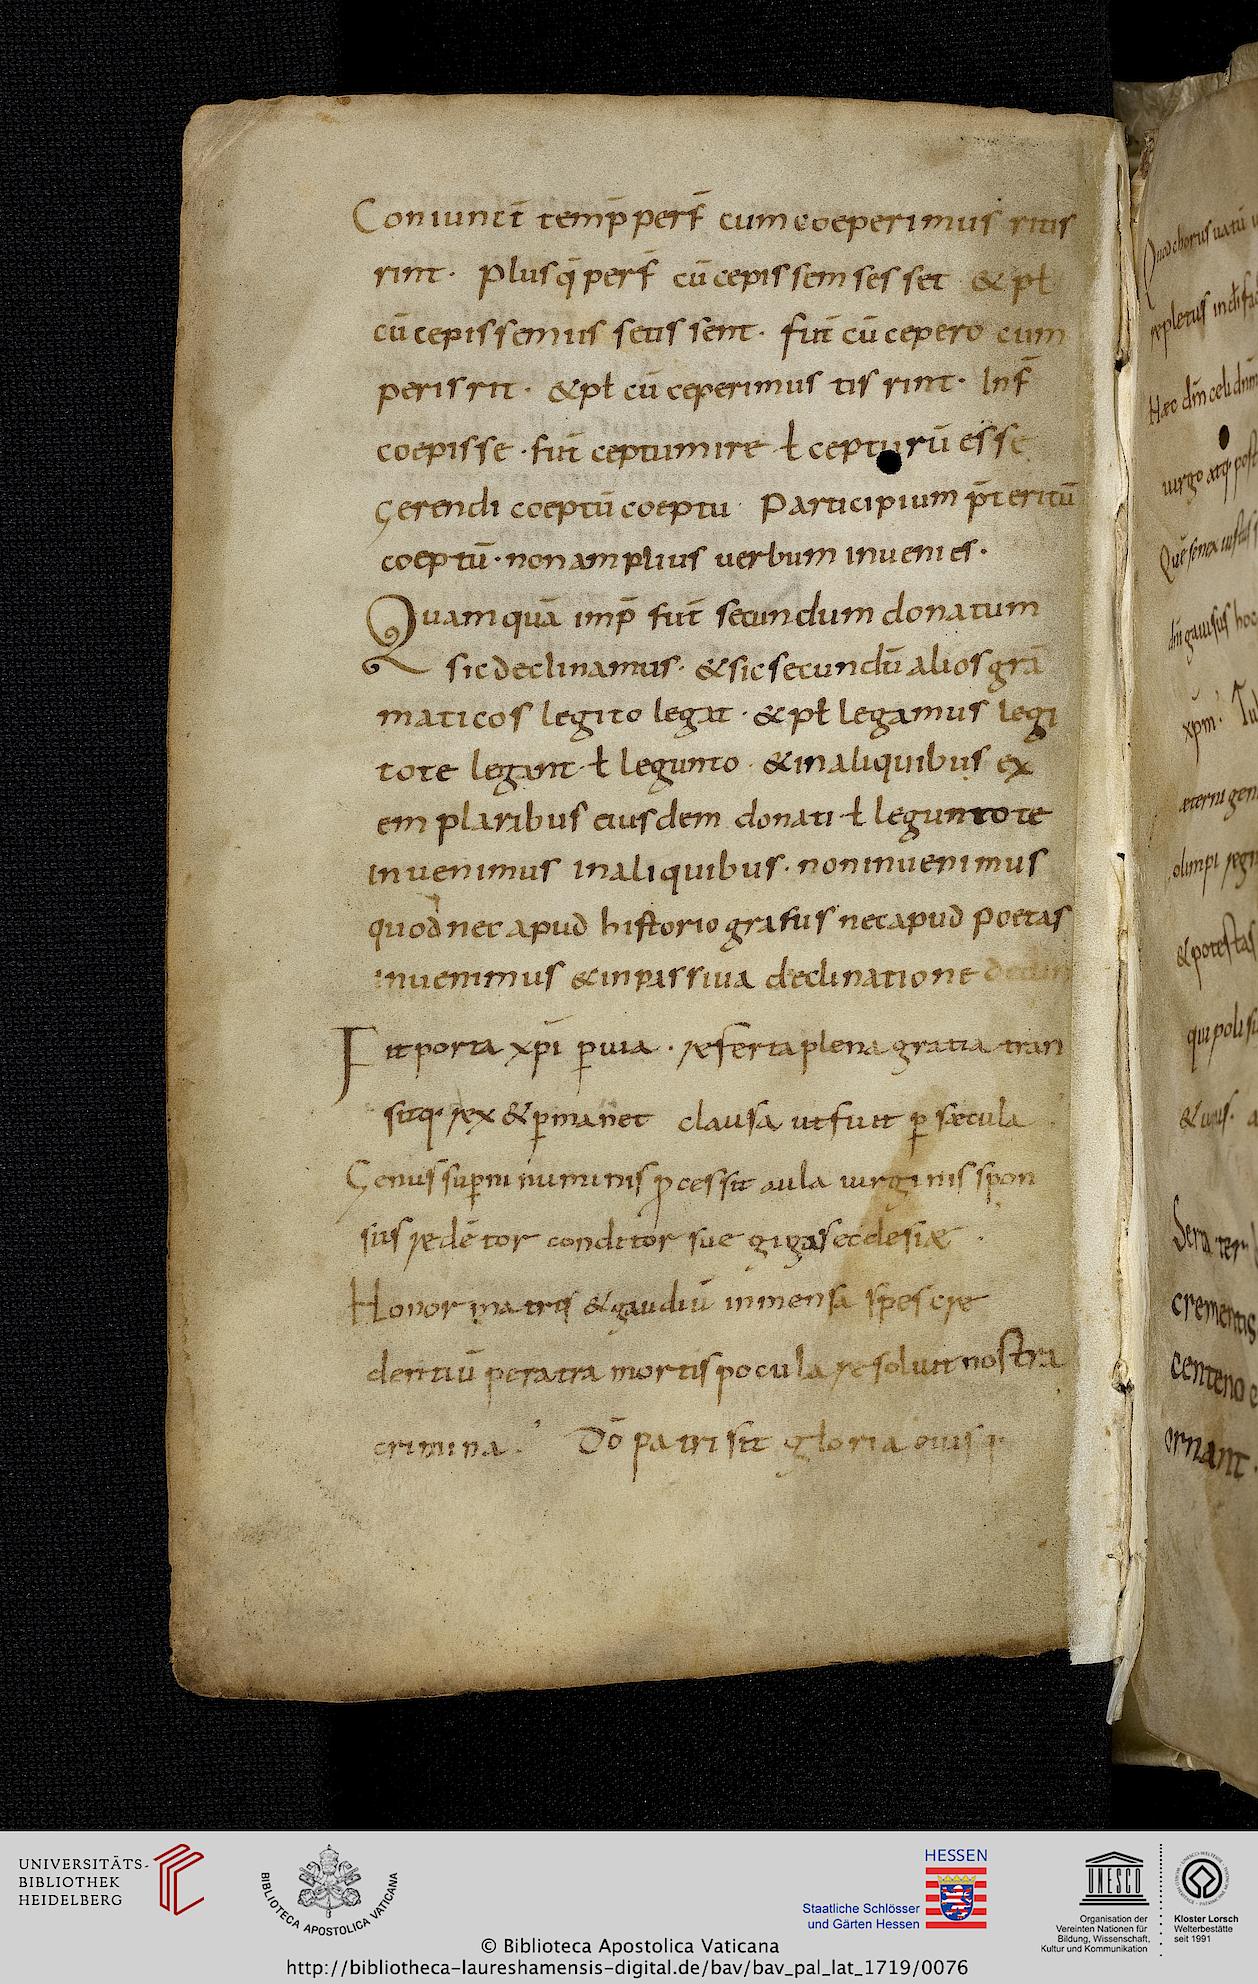 Coniunct̄ temp̄ perf̄ cum coeperimus ritis
rint· plusq̄ perf̄ cū cepissem ses set & pł
cū cepissemus setis sent· fut̄ cū cepero cum
peris rit· & pł cū ceperimus tis rint· Inf̄
coepisse· fut̄ ceptum ire ł cepturū esse
Gerendi coeptū coeptu Participium p̄teritū
coeptū· non amplius verbum invenies·
Quamquā imp̄ fut̄ secundum donatum
sic declinamus· & sic secundū alios grā
maticos legito legat· & pł legamus legi
tote legant ł legunto· & in aliquibus ex
emplaribus eiusdem donati ł leguntote
invenimus in aliquibus· non invenimus
quod nec apud historiografus nec apud poetas
invenimus & in passiva declinatione declin
Fit porta xp̄i p̄via· referta plena gratia tran
sitq· rex & p̄manet clausa ut fuit p̄ sæcula
Genus sup̄ni numinis p̄cessit aula virginis spon
sus redētor conditor sue gigas ecclesiæ
Honor matris & gaudiū inmensa spes cre
dentiū per atra mortis pocula resolvit nostra
crimina· Dō patri sit gloria eiusq·
Quad chorus vatū
repletus
Hæc dn̄m celi dn̄m
virgo atq· post
Que senex iustus
dn̄i gavisus hoc
xp̄m·
æterni geni
olimpi regn
& potestas
qui poli su
& unus· a
Sera ter
crementis
centeno e
ornant·
UNIVERSITÄTS-
BIBLIOTHEK
HEIDELBERG
BIBLIOTECA APOSTOLICA VATICANA
HESSEN
Staatliche Schlösser
und Gärten Hessen
UNESCO
Organisation der
Vereinten Nationen für
Bildung, Wissenschaft,
Kultur und Kommunikation
Kloster Lorsch
Welterbestätte
seit 1991
© Biblioteca Apostolica Vaticana
http://bibliotheca-laureshamensis-digital.de/bav/bav_pal_lat_1719/0076